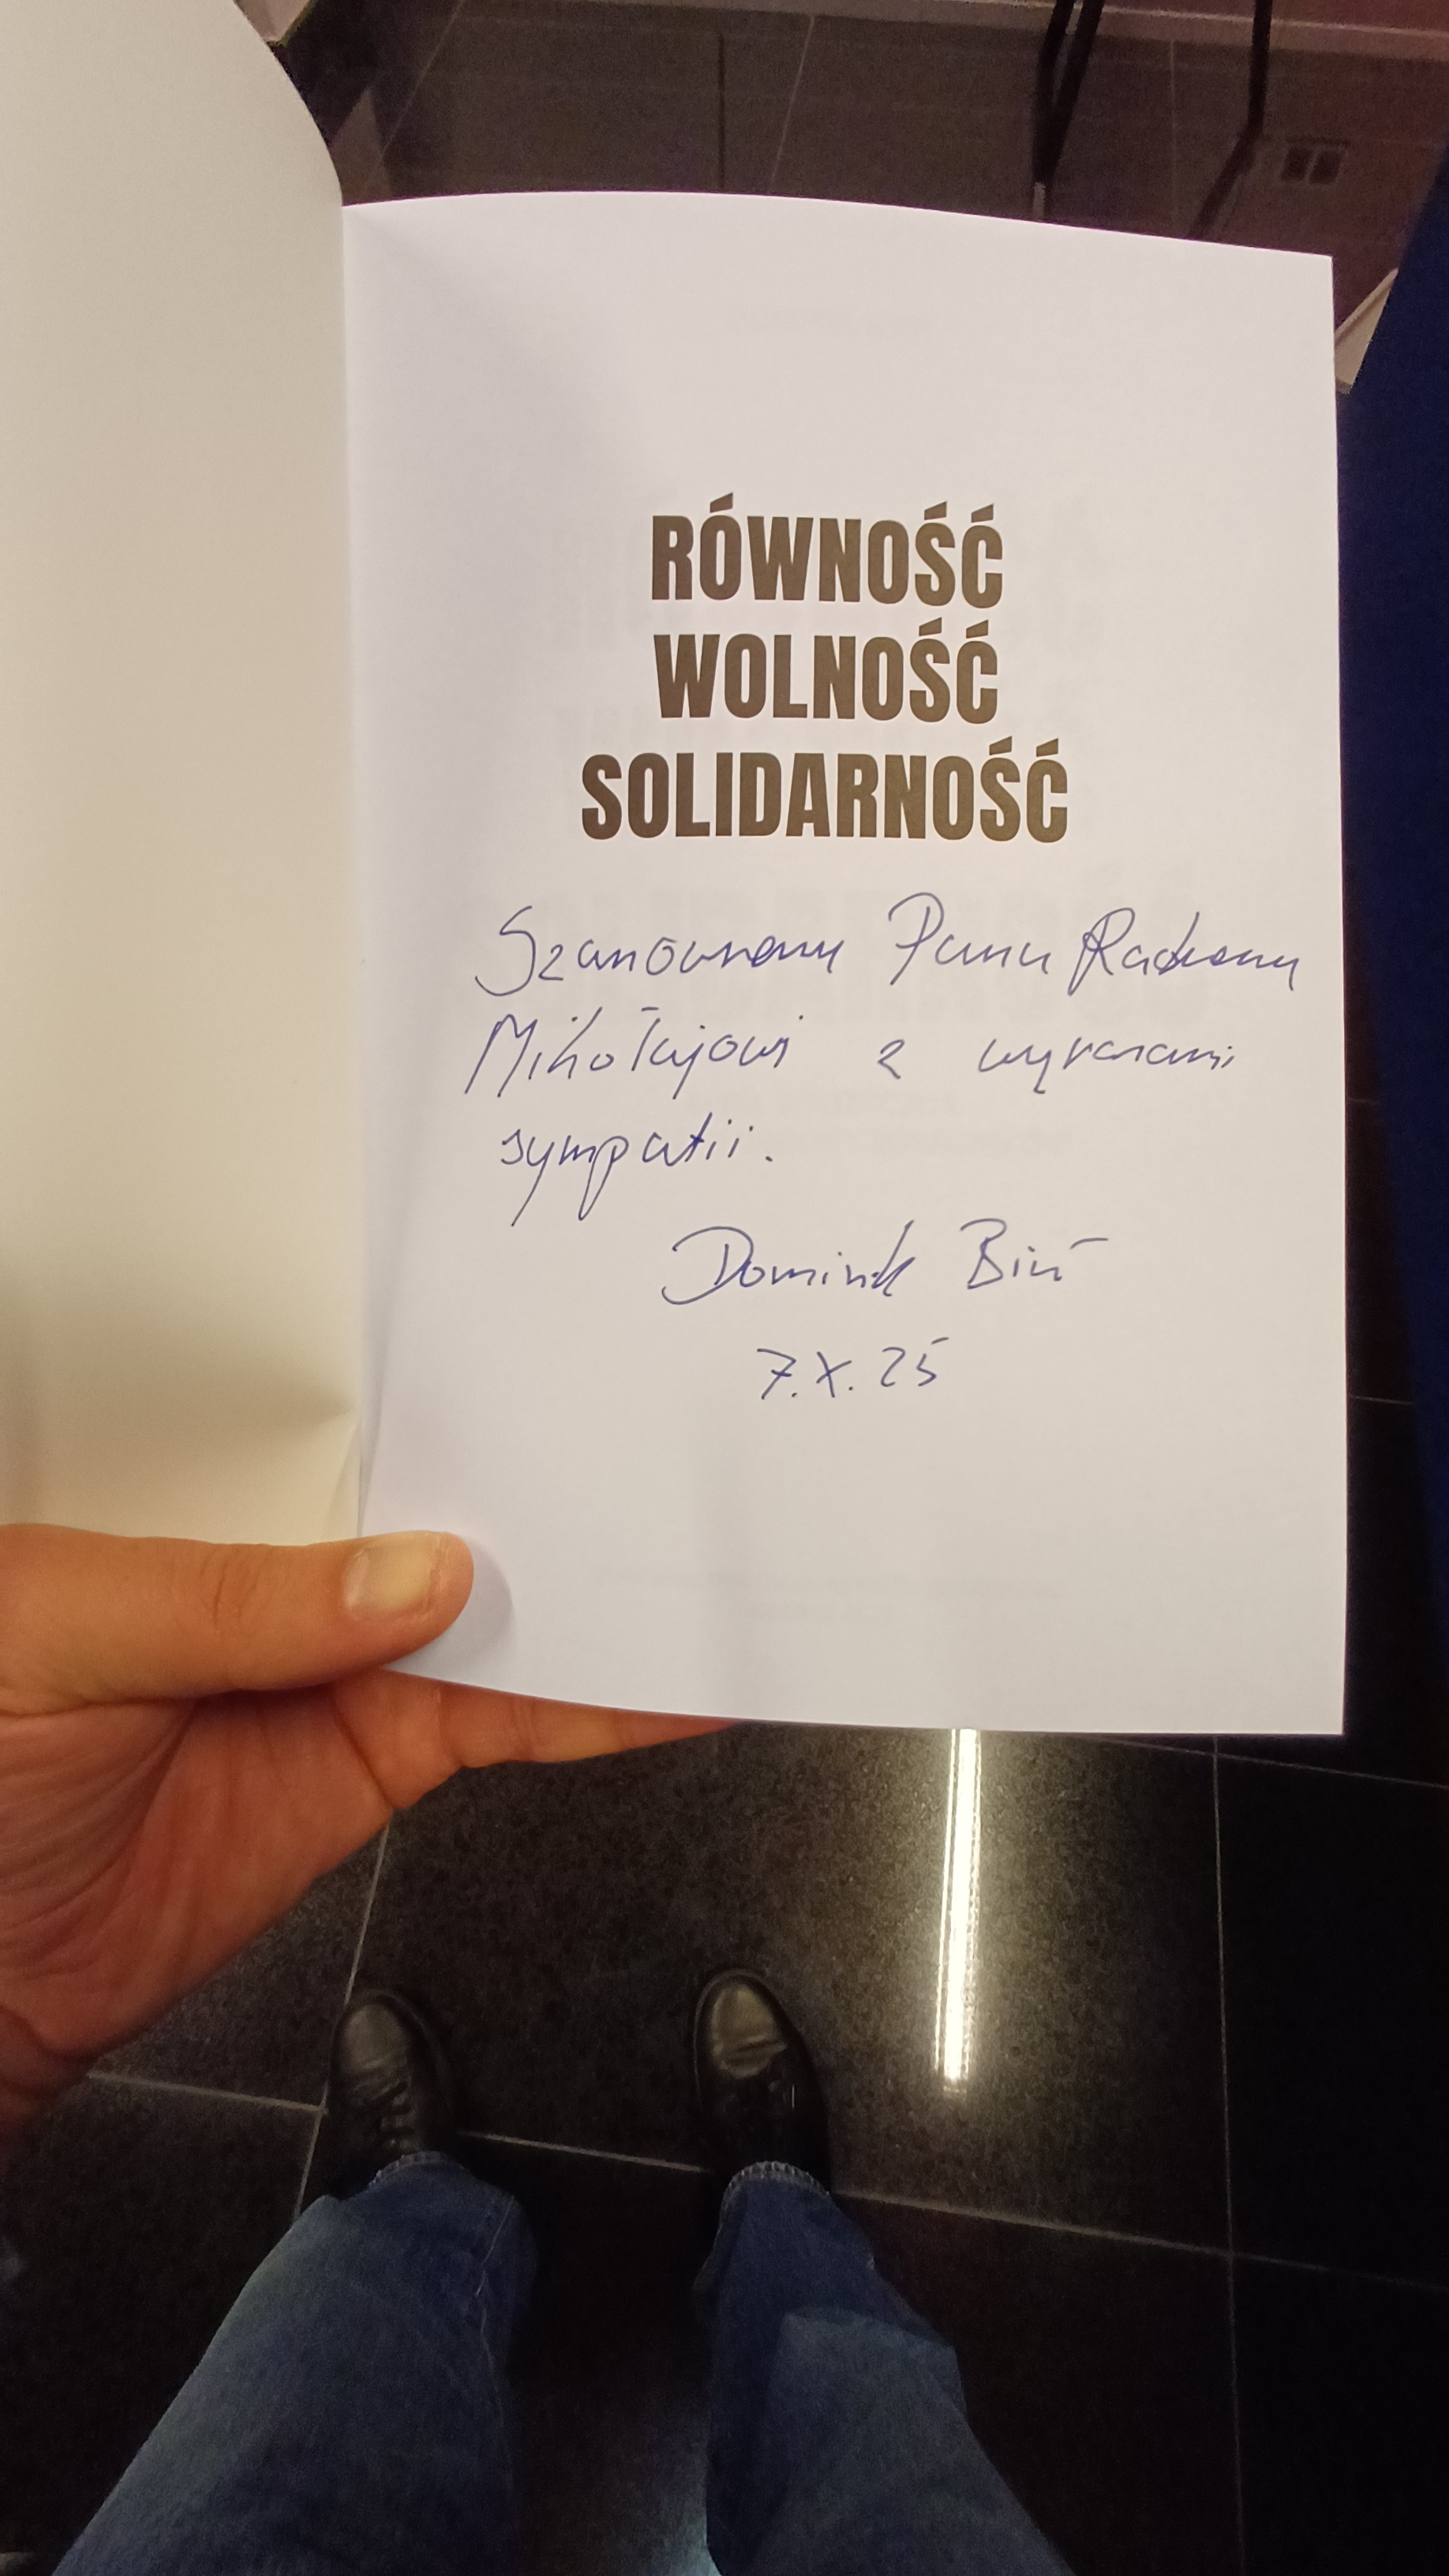 RÓWNOŚĆ
WOLNOŚĆ
SOLIDARNOŚĆ
Szanownemu Panu Radnemu
Mikołajowi z wyrazami
sympatii.
Dominik
7.X.25